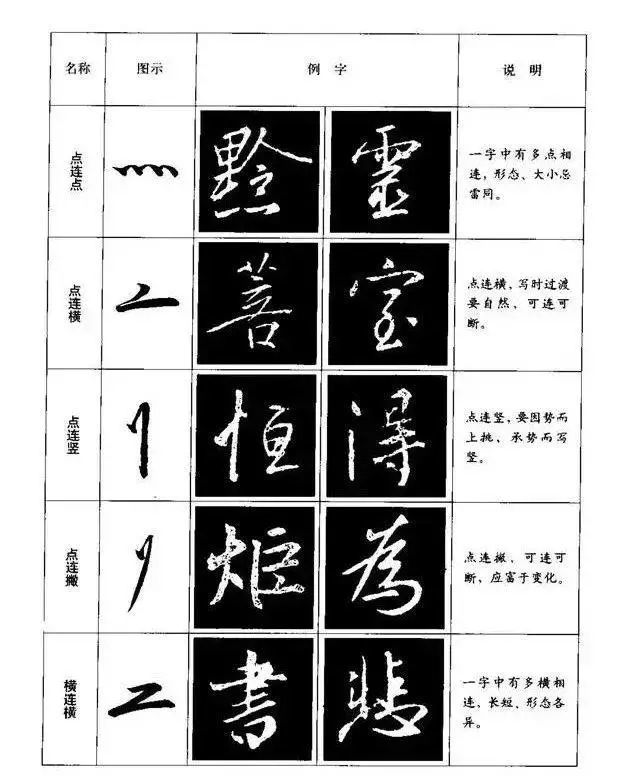 名称 图示 例 字 说 明
点连点 黔 靈 一字中有多点相
连，形态、大小忌
雷同。
点连横 菩 室 点连横、写时过渡
要自然、可连可
断。
点连竖 恒 得 点连竖，要因势而
上挑、承势而写
竖。
点连撇 炬 為 点连撇，可连可
断，应富于变化。
横连横 書 悲 一字中有多横相
连、长短、形态各
异。